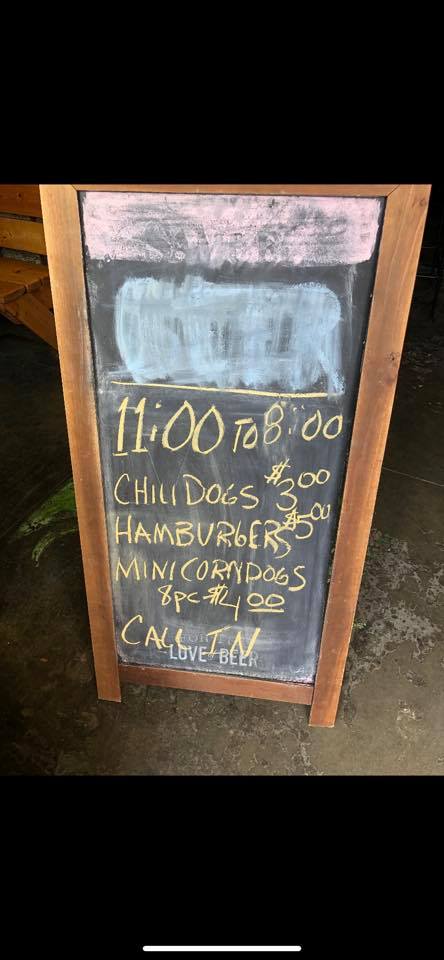 11:00 TO 8:00
CHILI DOGS $3.00
HAMBURGERS $5.00
MINI CORNDOGS
8pc $4.00
CALL IN
FOR THE
LOVE of BEER